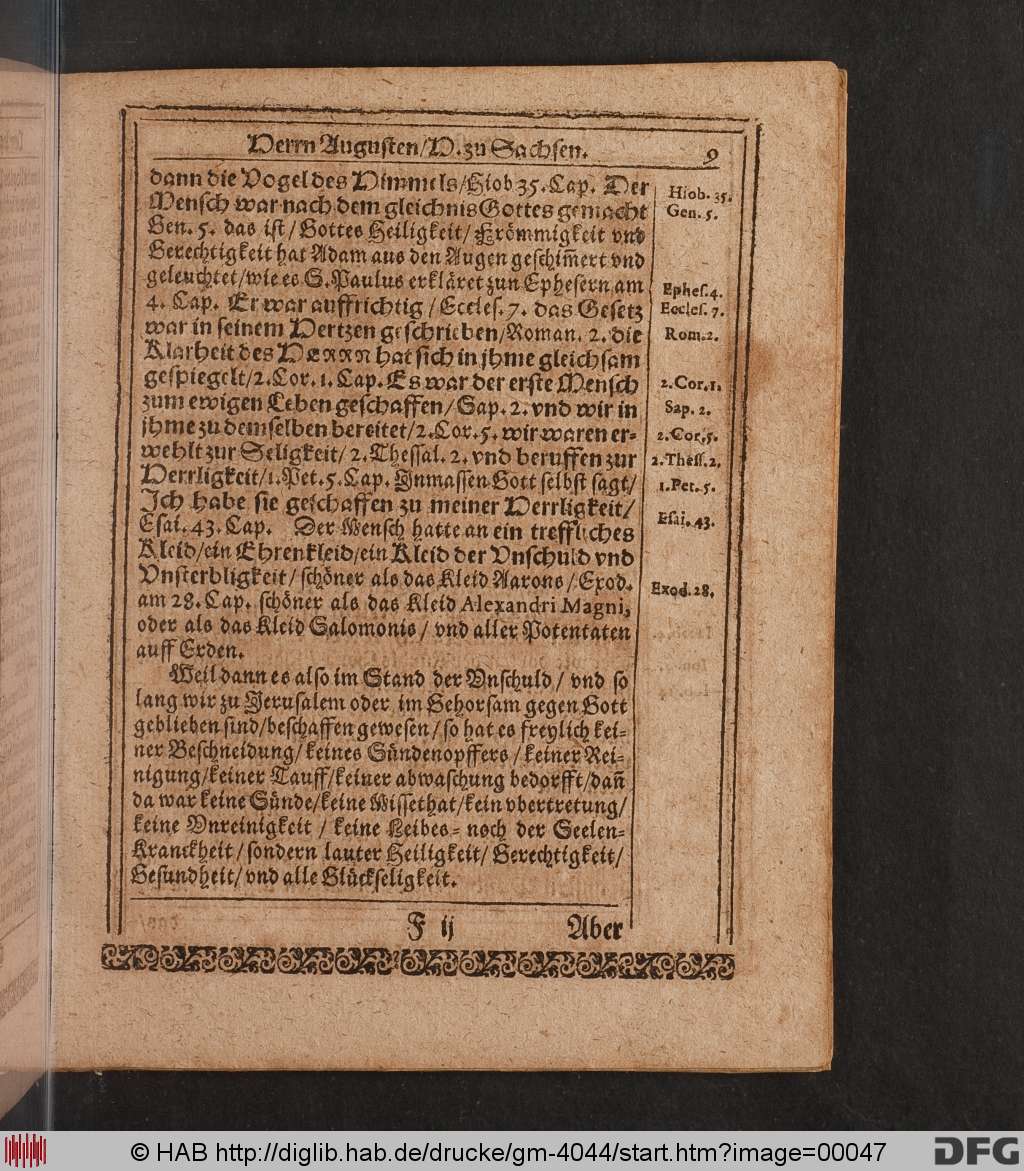 Herrn Augusten/H. zu Sachsen. 9
dann die Vogel des Himmels/Hiob 35. Cap. Der
Mensch war nach dem gleichnis Gottes gemacht
Gen. 5. das ist/Gottes Heiligkeit/Frömmigkeit vnd
Gerechtigkeit hat Adam aus den Augen geschim̃ert vnd
geleuchtet/wie es S. Paulus erkläret zun Ephesern am
4. Cap. Er war auffrichtig/Eccles. 7. das Gesetz
war in seinem Hertzen geschrieben/Roman. 2. die
Klarheit des HERRN hat sich in jhme gleichsam
gespiegelt/2. Cor. 1. Cap. Es war der erste Mensch
zum ewigen Leben geschaffen/Sap. 2. vnd wir in
jhme zu demselben bereitet/2. Cor. 5. wir waren er-
wehlt zur Seligkeit/2. Thessal. 2. vnd beruffen zur
Herrligkeit/1. Pet. 5. Cap. Inmassen Gott selbst sagt/
Ich habe sie geschaffen zu meiner Herrligkeit/
Esai. 43. Cap. Der Mensch hatte an ein treffliches
Kleid/ein Ehrenkleid/ein Kleid der Vnschuld vnd
Vnsterbligkeit/schöner als das Kleid Aarons/Exod.
am 28. Cap. schöner als das Kleid Alexandri Magni,
oder als das Kleid Salomonis/vnd aller Potentaten
auff Erden.
Weil dann es also im Stand der Vnschuld/vnd so
lang wir zu Jerusalem oder im Gehorsam gegen Gott
geblieben sind/beschaffen gewesen/so hat es freylich kei-
ner Beschneidung/keines Sündenopffers/keiner Rei-
nigung/keiner Tauff/keiner abwaschung bedorfft/dañ
da war keine Sünde/keine Missethat/kein vbertretung/
keine Vnreinigkeit/keine Leibes- noch der Seelen-
Kranckheit/sondern lauter Heiligkeit/Gerechtigkeit/
Gesundheit/vnd alle Glückseligkeit.
Hiob. 35.
Gen. 5.
Ephes. 4.
Eccles. 7.
Rom. 2.
2. Cor. 1.
Sap. 2.
2. Cor. 5.
2. Thess. 2.
1. Pet. 5.
Esai. 43.
Exod. 28.
F ij Aber
© HAB http://diglib.hab.de/drucke/gm-4044/start.htm?image=00047
DFG